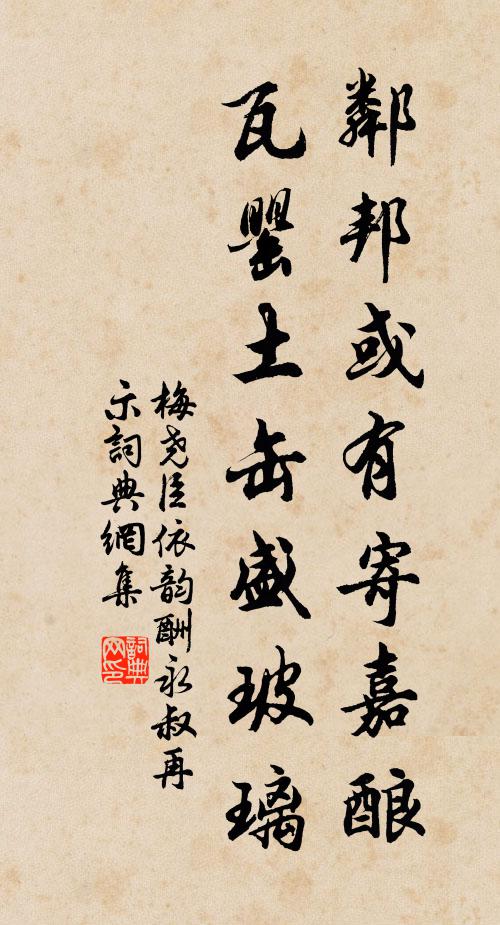 鄰邦或有寄嘉酿
瓦罂土缶盛玻璃
梅尧臣依韵酬永叔再
示詞典網集
詞典網印